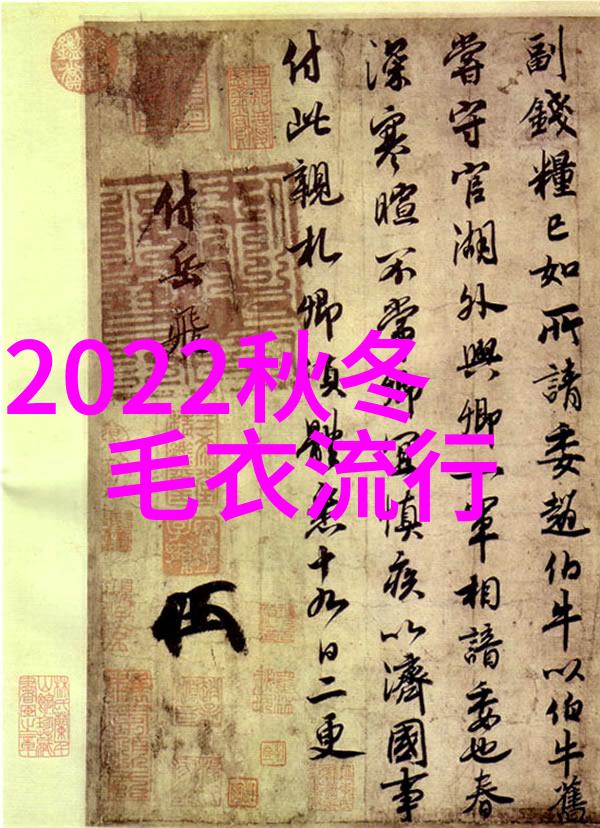 副錢糧已如所請委趙伯牛以伯牛舊
嘗守官湖外與卿一軍相諳委也春
深寒暄不常卿宜慎疾以濟國事
付此親札卿須體悉十九日二更
付岳飛
2022秋冬
毛衣流行